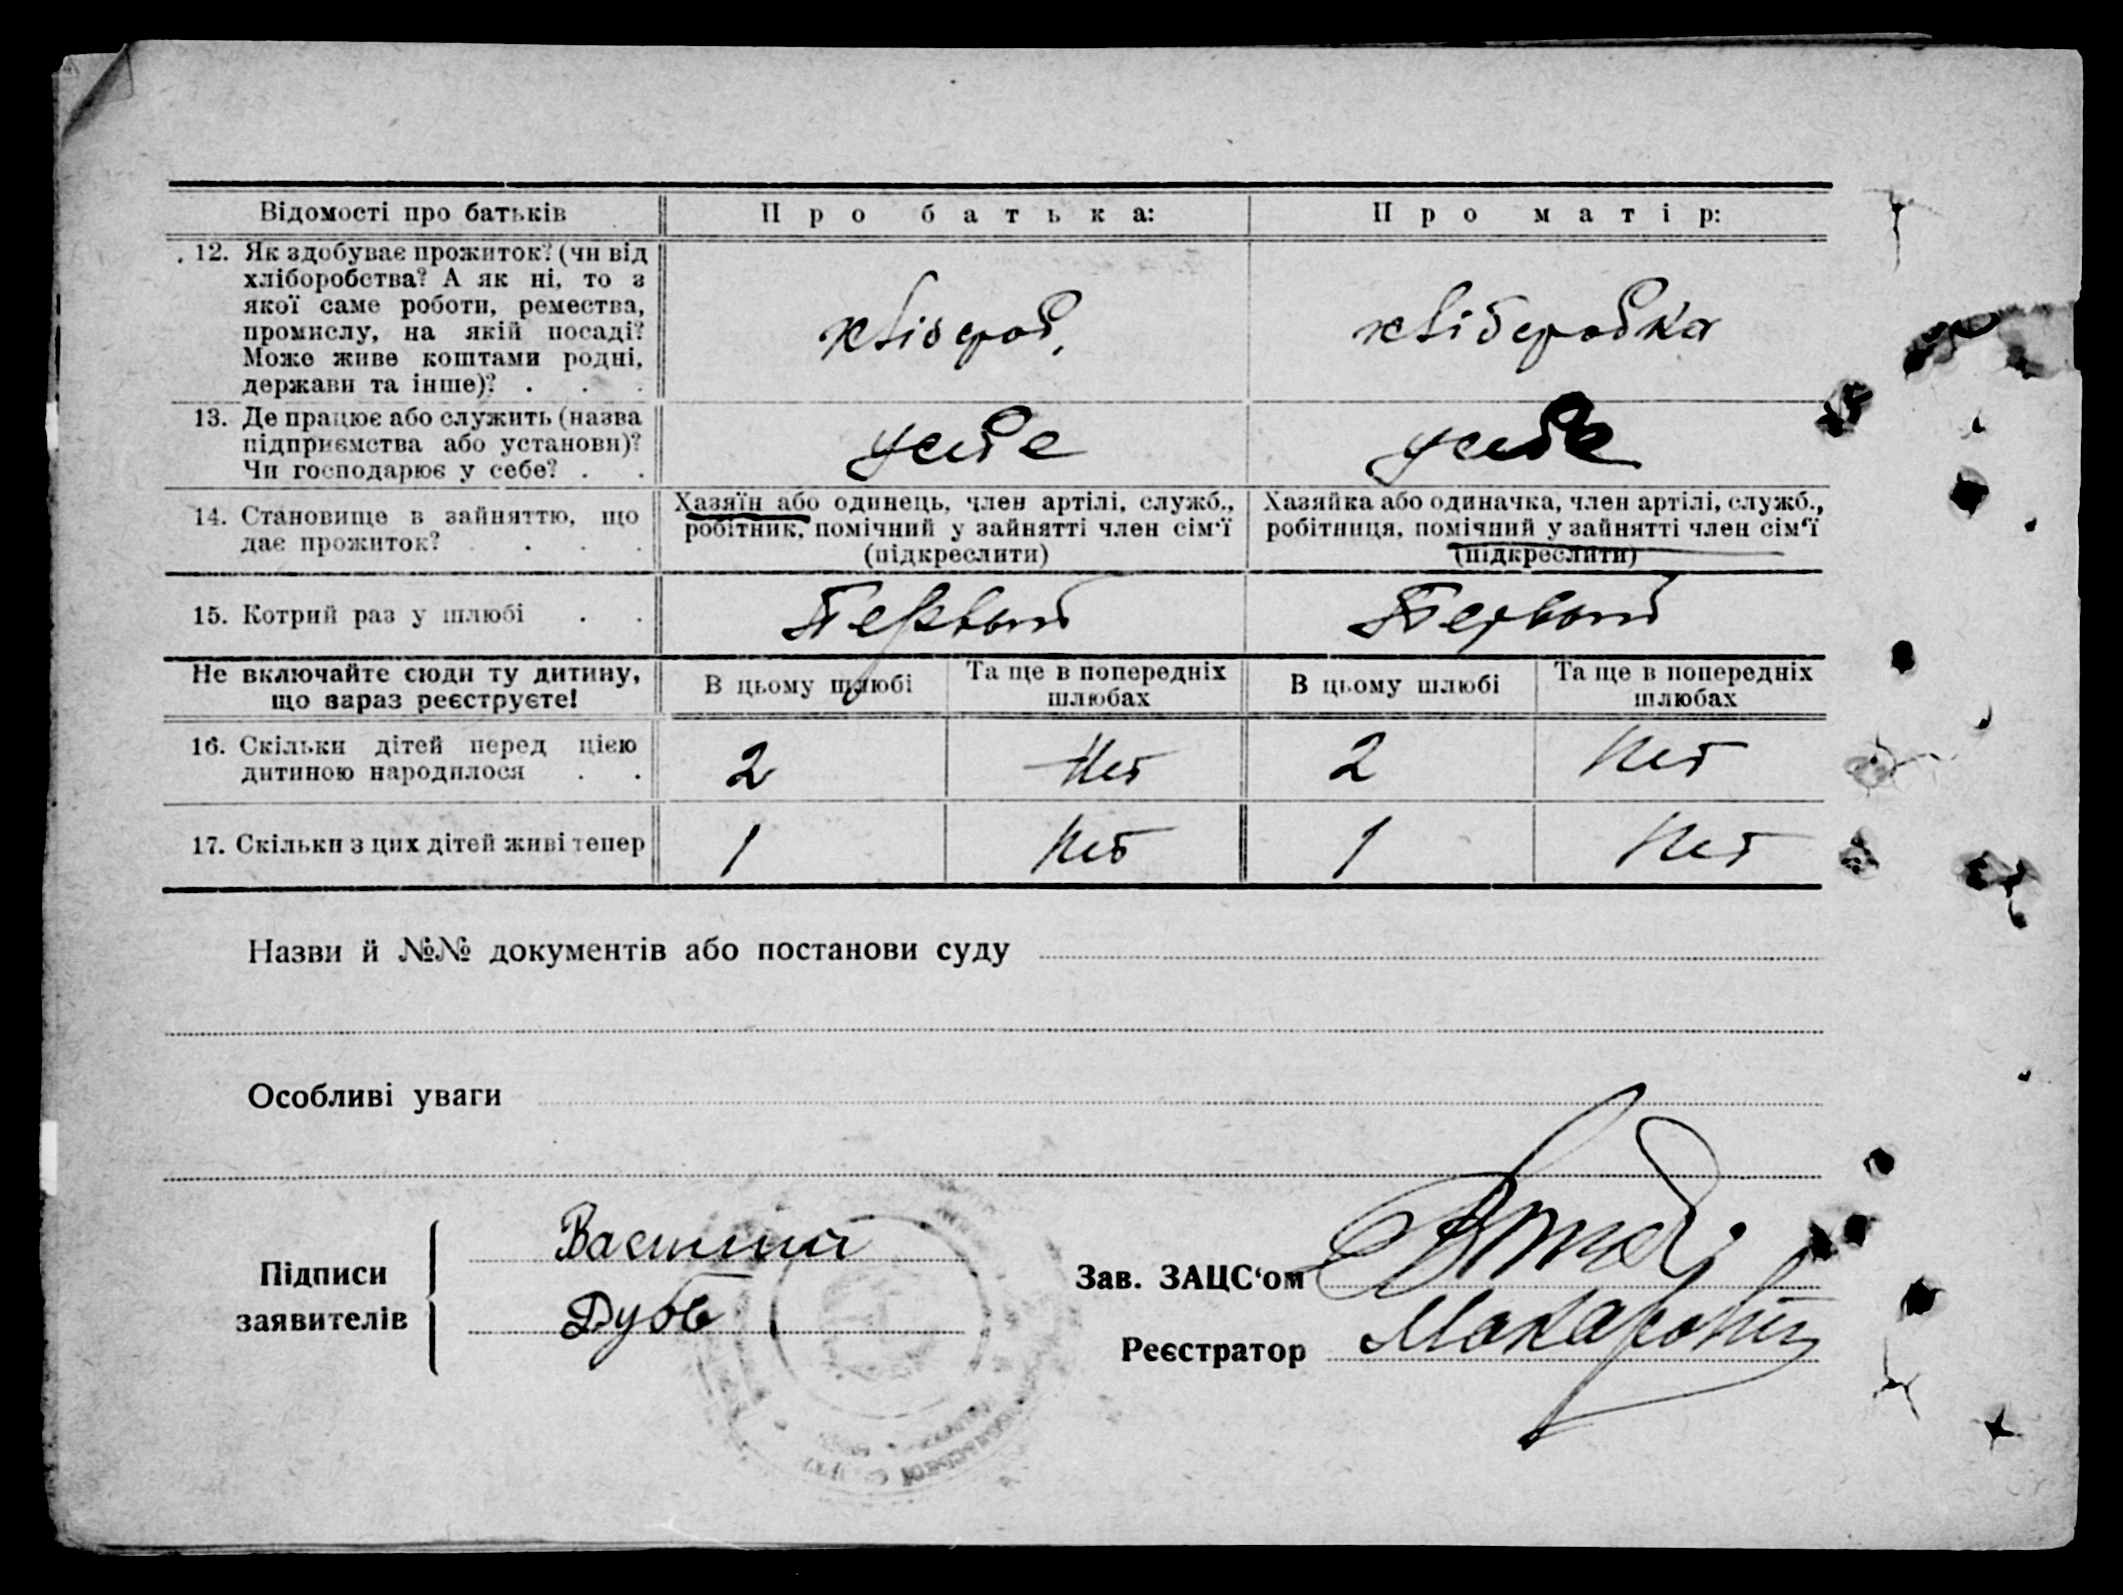 Відомості про батьків
Про батька:
Про матір:
12. Як здобуває прожиток? (чи від
хліборобства? А як ні, то з
якої саме роботи, ремества,
промислу, на якій посаді?
Може живе коштами родні,
держави та інше)? . . .
хлібероб,
хліберобка
13. Де працює або служить (назва
підприємства або установи)?
Чи господарює у себе? . .
усебе
усебе
14. Становище в зайняттю, що
дає прожиток? . . . .
Хазяїн або одинець, член артілі, служб.,
робітник, помічний у зайнятті член сім'ї
(підкреслити)
Хазяйка або одиначка, член артілі, служб.,
робітниця, помічний у зайнятті член сім'ї
(підкреслити)
15. Котрий раз у шлюбі . .
Первый
Первый
Не включайте сюди ту дитину,
що зараз реєструєте!
В цьому шлюбі
Та ще в попередніх
шлюбах
В цьому шлюбі
Та ще в попередніх
шлюбах
16. Скільки дітей перед цією
дитиною народилося . .
2
Нет
2
Нет
17. Скільки з цих дітей живі тепер
1
Нет
1
Нет
Назви й №№ документів або постанови суду
Особливі уваги
Підписи
заявителів
Василий
Дубв
Зав. ЗАЦС'ом
Реєстратор